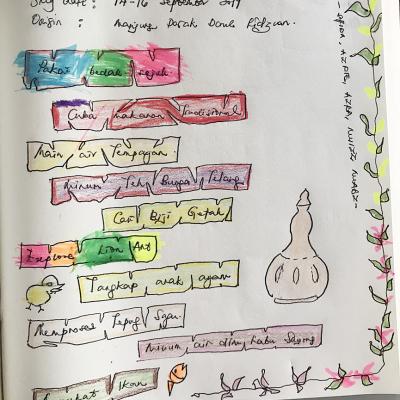 Stay date : 14-16 September 2019
Origin : Manjung Perak Darul Ridzuan.
Pakai bedak sejuk.
Cuba makanan Tradisional
Main air Tempayan
Minum Teh Bunga Telang
Cari Biji Getah
Explore Lion Ant
Tangkap anak ayam
Memproses Tepung Sagu
Minum air dlm Labu Sayong
Ikan